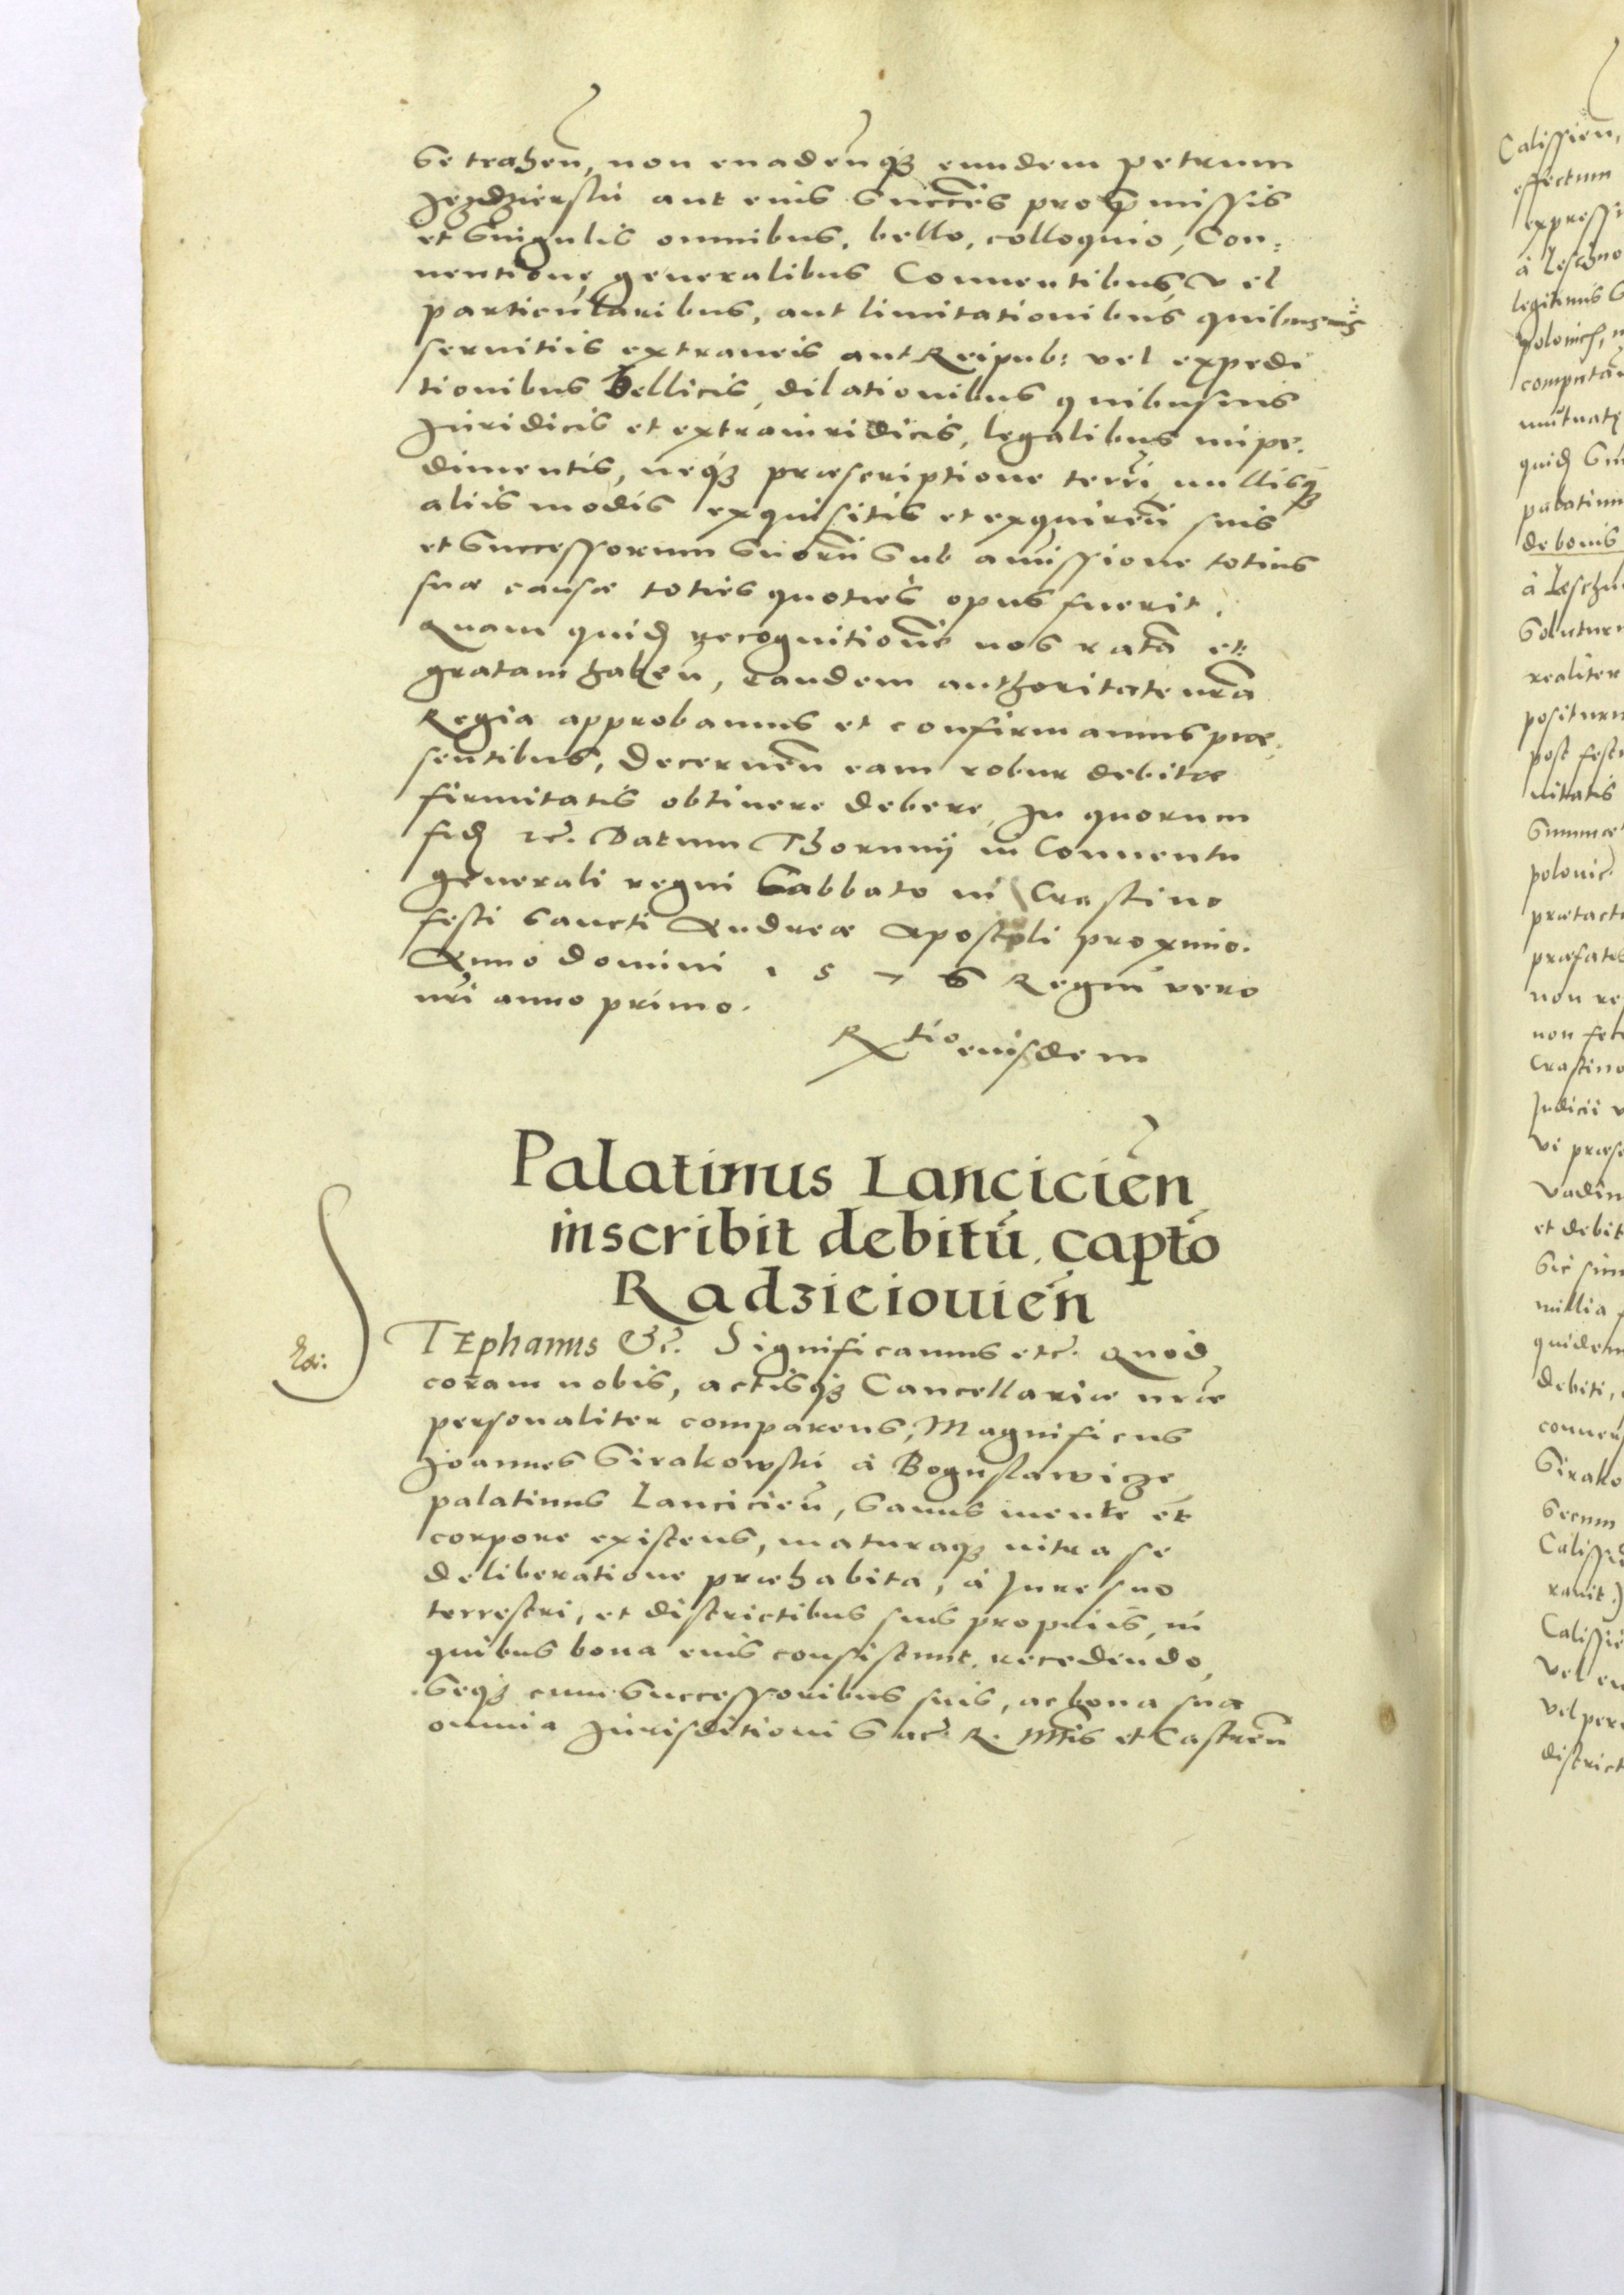 se trahen̄, non euaden̄q̃ȝ eundem petrum
Jezdzierskii aut eius Succ̃es pro p̃missis
et Singulis omnibus, bello, colloquio, Con:
uentione generalibus Conuentibus, vel
particularibus, aut limitationibus quibusuis
seruitiis extraneis aut Reipub: vel expedi
tionibus bellicis, dilationibus quibusuis
Juridicis et extrajuridicis, legalibus impe.
dimentis, neq̃ȝ præscriptione terr̃i nullisq̃ȝ
aliis modis exquisitis et exquiren̄ suis
et Successorum Suorũ Sub amissione totius
suæ causæ toties quoties opus fuerit.
Quam quid̃ recognitionẽ nos ratã et
gratam haben̄, eandem authoritate nr̃a
Regia approbamus et confirmamus præ.
sentibus, Decernen̄ eam robur debitæ
firmitatis obtinere debere, In quorum
fid̃ etc̃. Datum Thorunij in Conuentu
generali regni Sabbato in Crastino
festi Sancti Andreæ Apostoli proximo.
Anno Domini 1 5 7 6 Regni vero
nr̃i anno primo.
R tio eiusdem
Palatinus Lancicien̄
inscribit debitũ capt̃o
Radzieiouien̄
STEphanus &c̃. Significamus etc̃. Quod
coram nobis, actisq̃ȝ Cancellariæ nr̃æ
personaliter comparens, Magnificus
Joannes Sirakowskii à Boguslawicze
palatinus Lancicien̄, Sanus mente et
corpore existens, maturaq̃ȝ intra se
deliberatione præhabita, à Jure suo
terrestri, et districtibus suis propriis, in
quibus bona eius consistunt, recedendo,
Seq̃ȝ cum Successoribus suis, ac bona sua
omnia Jurisditioni Sac̃. R. Mt̃is et Castren̄
Calissien̄,
effectum
à Leschno
polonic̃,
palatinu
de bonis
realiter
positur
post fest
uitatis
polonic̃
non re
Crastino
Judicii
et debit
millia
quidem
debiti,
Sirako
Secum
Vel
district